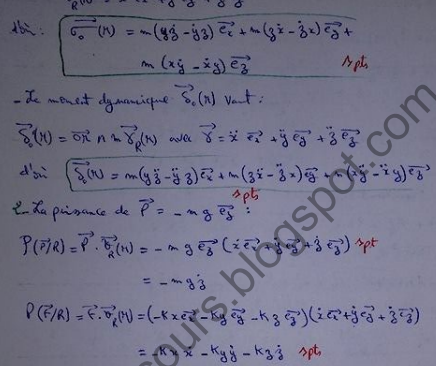 d'où : σ₀(M) = m(yż - ẏz) e_x + m(zẋ - żx) e_y +
m(xẏ - ẋy) e_z 5pts
- Le moment dynamique δ₀(M) vaut :
δ₀(M) = OM ∧ m γ_R(M) avec γ = ẍ e_x + ÿ e_y + z̈ e_z
d'où δ₀(M) = m(yz̈ - ÿz) e_x + m(zẍ - z̈x) e_y + m(xÿ - ẍy) e_z
5pts
2 - La puissance de P = - m g e_z :
P(P/R) = P . v_R(M) = - m g e_z (ẋ e_x + ẏ e_y + ż e_z) 5pt
= - m g ż
P(F/R) = F . v_R(M) = (-Kx e_x - Ky e_y - Kz e_z)(ẋ e_x + ẏ e_y + ż e_z)
= -Kxẋ - Kyẏ - Kzż 5pts
cours.blogspot.com